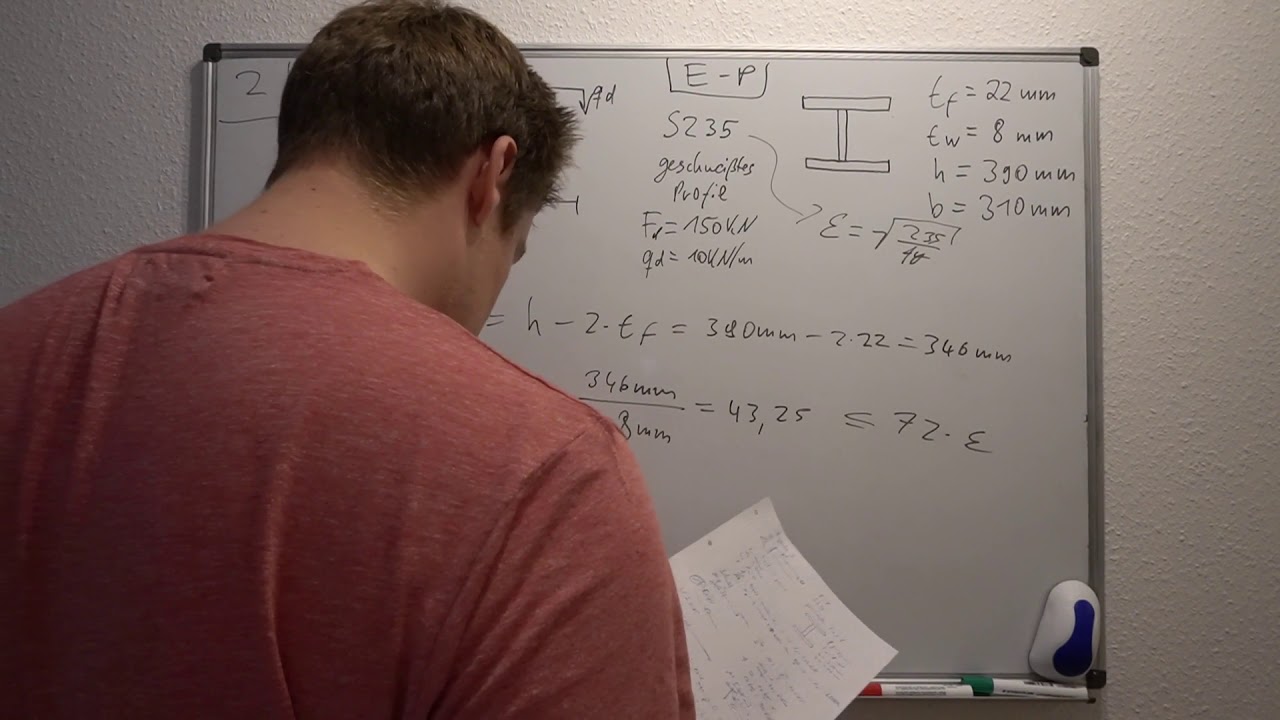 2
qd
E-P
S235
geschweißtes
Profil
Fd = 150 kN
qd = 10 kN/m
tf = 22 mm
tw = 8 mm
h = 390 mm
b = 310 mm
ε = √235/fy
= h - 2 · tf = 390mm - 2·22 = 346mm
346mm
8mm
= 43,25 ≤ 72 · ε